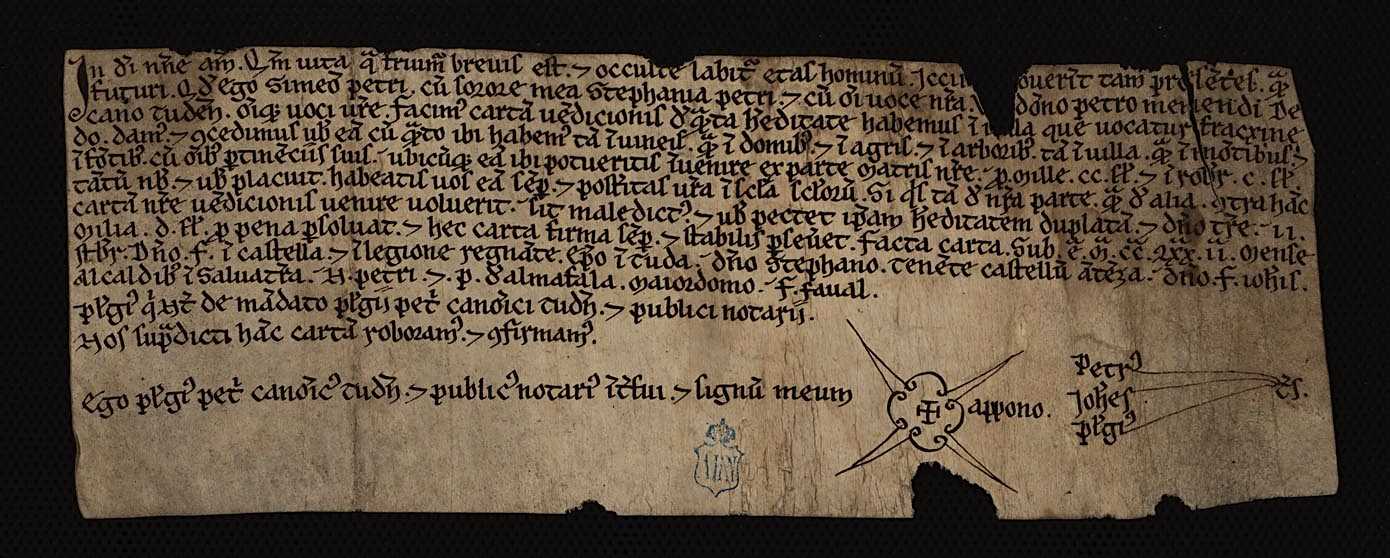 In dī nr̄e am̄. Qm̄ uita q̄ fruim̄ brevis est. ⁊ occulte labit̄ etas hominū. Icci overīt tam p̄sētes. q̄
futuri. Q d̄ ego Simeō petri. cū sorore mea Stephania petri. ⁊ cū oī uoce nr̄a. dōno petro menendi De
cano tudēn̄. oiq; uoci ur̄e. facim' cartā uēdicionis d' q̄ta hēditate habemus ī uilla que uocatur fracxine
do. dam'. ⁊ ꝯcedimus ub' eā cū q̄to ibi habem' tā ī uineis. q̄ ī domib'. ⁊ ī agris. ⁊ ī arborib'. tā ī uilla. q̄ ī mōtibus ⁊
ī fōtib'. cū oīb' ꝑtinēciis suis. ubicūq; eā ibi potueritis īuenire ex parte matris nr̄e. ꝓ Mille. cc. sł. ⁊ ī robr̄. c. sł.
tātū nb'. ⁊ ub' placuit. habeatis uos eā sēp̄. ⁊ post̄itas ur̄a ī scl̄a scl̄orū. Si q̄s tā d' nr̄a parte. q̄ d' alia. ꝯtra hāc
cartā nr̄e uēdicionis uenire uoluerit. sit maledict'. ⁊ ub' pectet ip̄am hēditatem duplatā. ⁊ dn̄o tr̄e. ii.
Milia. d. sł. ꝓ pena ꝑsoluat. ⁊ hec carta firma sēp̄. ⁊ stabilis ꝑseūet. facta carta. Sub ē. M̄. cc̄. Lxx. ii. Mense
Dn̄o. f. ī castella. ⁊ ī legione regnāte. Ep̄o ī tuda. dn̄o Stephano. tenēte castellū. dn̄o. f. ioh̄is.
alcaldib' ī Saluatr̄a. N. petri. ⁊. p. d'almafala. Maiordomo. f. faual.
pł̄gi' q̄ Nt̄ de mādato pł̄gii pet̄ canōici tudn̄. ⁊ publici notarii.
Nos sup̄dicti hāc cartā roboram'. ⁊ ꝯfirmam'.
Ego pł̄gi' pet̄ canōic' tudn̄. ⁊ public' notari' īt̄fui. ⁊ signū meum appono.
Petr'
Ioh̄es
Pł̄gi'
t̄s.